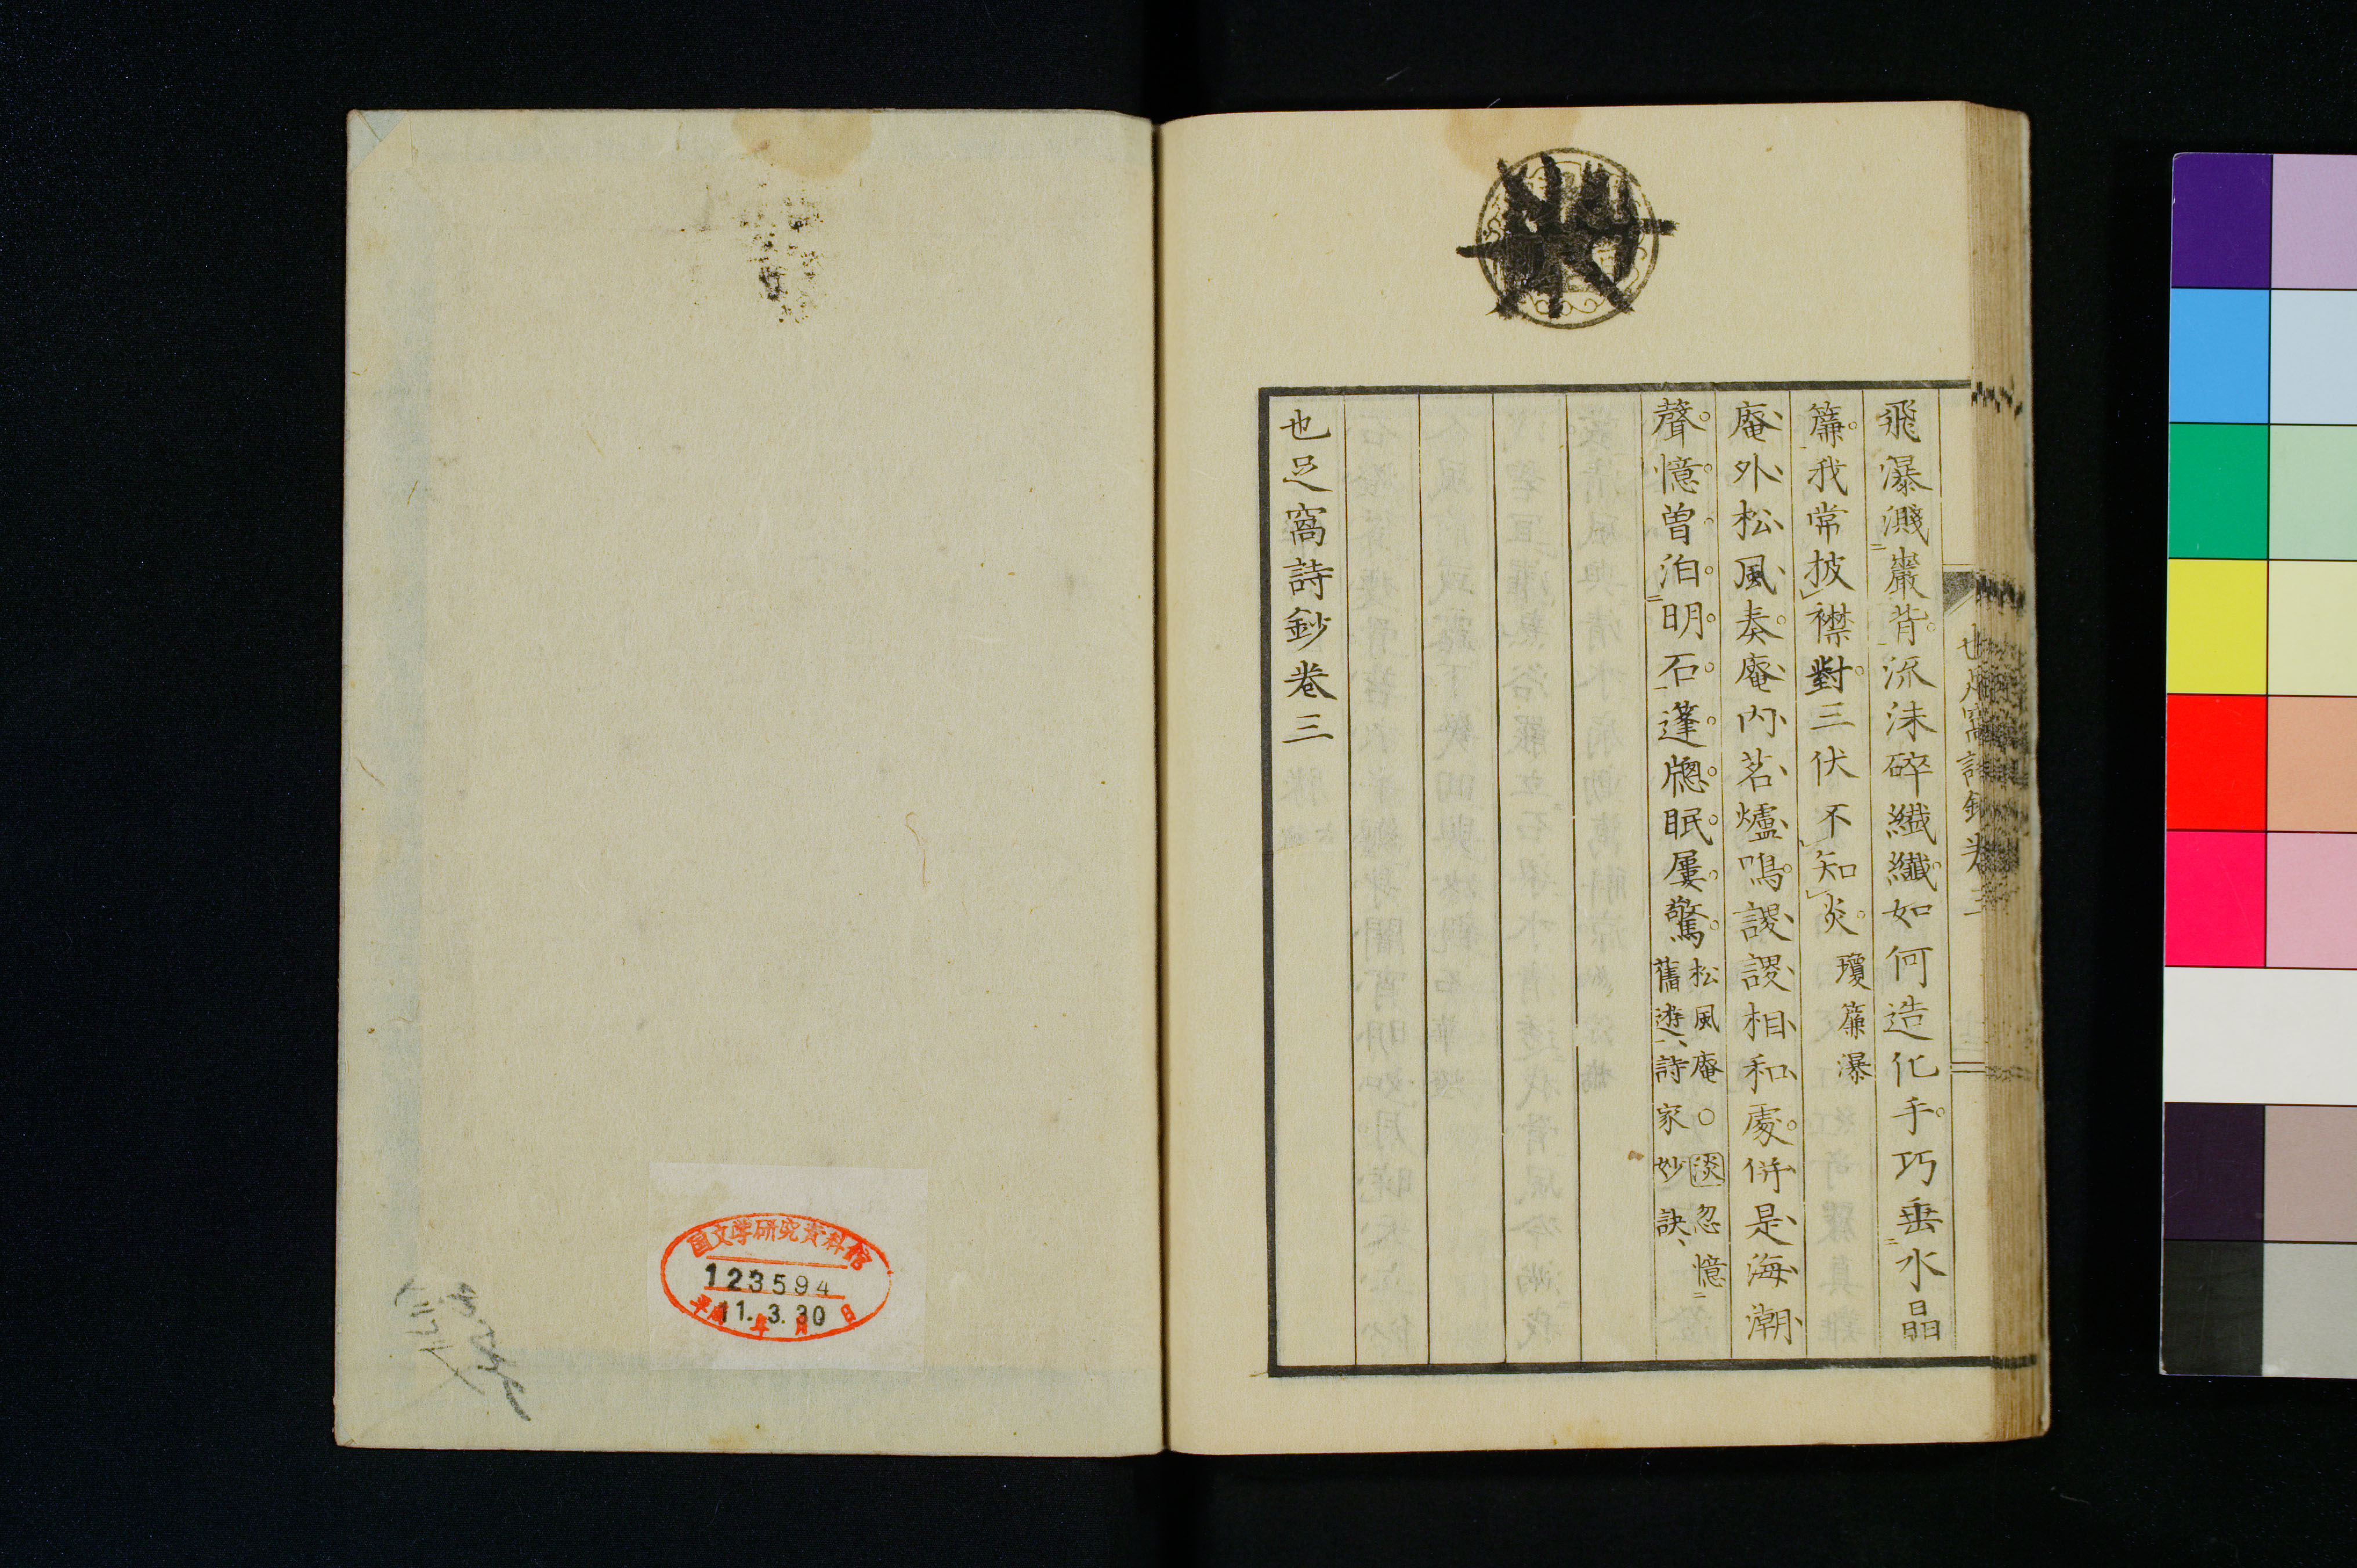 也足窩詩鈔卷三
飛瀑濺巖背流沫碎纖纖如何造化手巧垂水晶
簾我常披襟對三伏不知炎 瓊簾瀑
庵外松風奏庵內茗爐鳴謖謖相和處併是海潮
聲憶曾泊明石蓬牕眠屢驚 松風庵○淡忽憶
舊遊詩家妙訣
也足窩詩鈔卷三
国文学研究資料館
123594
平成11.3.30
年 月 日